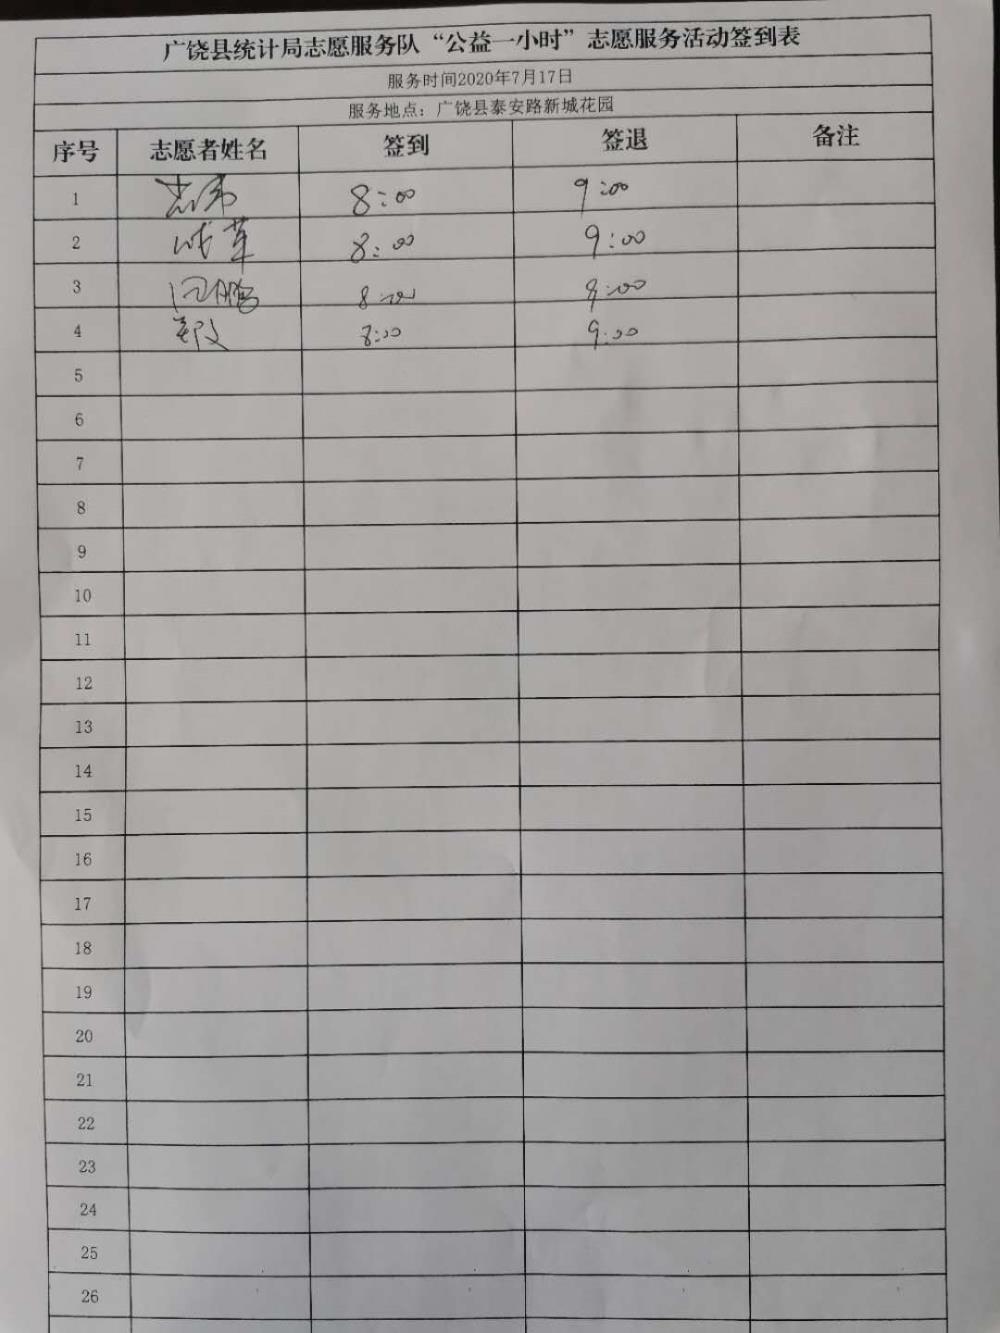 广饶县统计局志愿服务队“公益一小时”志愿服务活动签到表
服务时间2020年7月17日
服务地点：广饶县泰安路新城花园
序号 志愿者姓名 签到 签退 备注
1 8:00 9:00
2 8:00 9:00
3 8:00 9:00
4 8:00 9:00
5
6
7
8
9
10
11
12
13
14
15
16
17
18
19
20
21
22
23
24
25
26